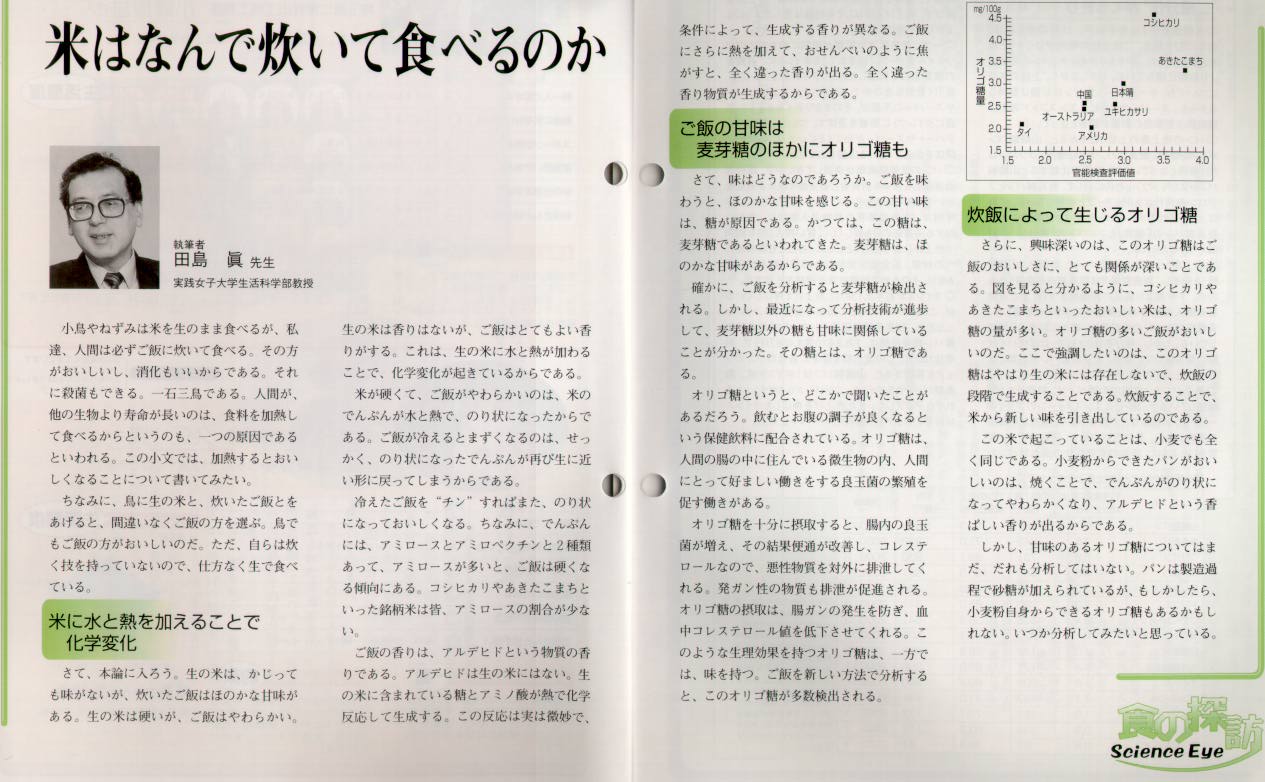 米はなんで炊いて食べるのか
執筆者
田島 眞 先生
実践女子大学生活科学部教授
小鳥やねずみは米を生のまま食べるが、私
達、人間は必ずご飯に炊いて食べる。その方
がおいしいし、消化もいいからである。それ
に殺菌もできる。一石三鳥である。人間が、
他の生物より寿命が長いのは、食料を加熱し
て食べるからというのも、一つの原因である
といわれる。この小文では、加熱するとおい
しくなることについて書いてみたい。
ちなみに、鳥に生の米と、炊いたご飯とを
あげると、間違いなくご飯の方を選ぶ。鳥で
もご飯の方がおいしいのだ。ただ、自らは炊
く技を持っていないので、仕方なく生で食べ
ている。
米に水と熱を加えることで
化学変化
さて、本論に入ろう。生の米は、かじって
も味がないが、炊いたご飯はほのかな甘味が
ある。生の米は硬いが、ご飯はやわらかい。
生の米は香りはないが、ご飯はとてもよい香
りがする。これは、生の米に水と熱が加わる
ことで、化学変化が起きているからである。
米が硬くて、ご飯がやわらかいのは、米の
でんぷんが水と熱で、のり状になったからで
ある。ご飯が冷えるとまずくなるのは、せっ
かく、のり状になったでんぷんが再び生に近
い形に戻ってしまうからである。
冷えたご飯を“チン”すればまた、のり状
になっておいしくなる。ちなみに、でんぷん
には、アミロースとアミロペクチンと2種類
あって、アミロースが多いと、ご飯は硬くな
る傾向にある。コシヒカリやあきたこまちと
いった銘柄米は皆、アミロースの割合が少な
い。
ご飯の香りは、アルデヒドという物質の香
りである。アルデヒドは生の米にはない。生
の米に含まれている糖とアミノ酸が熱で化学
反応して生成する。この反応は実は微妙で、
条件によって、生成する香りが異なる。ご飯
にさらに熱を加えて、おせんべいのように焦
がすと、全く違った香りが出る。全く違った
香り物質が生成するからである。
ご飯の甘味は
麦芽糖のほかにオリゴ糖も
さて、味はどうなのであろうか。ご飯を味
わうと、ほのかな甘味を感じる。この甘い味
は、糖が原因である。かつては、この糖は、
麦芽糖であるといわれてきた。麦芽糖は、ほ
のかな甘味があるからである。
確かに、ご飯を分析すると麦芽糖が検出さ
れる。しかし、最近になって分析技術が進歩
して、麦芽糖以外の糖も甘味に関係している
ことが分かった。その糖とは、オリゴ糖であ
る。
オリゴ糖というと、どこかで聞いたことが
あるだろう。飲むとお腹の調子が良くなると
いう保健飲料に配合されている。オリゴ糖は、
人間の腸の中に住んでいる微生物の内、人間
にとって好ましい働きをする良玉菌の繁殖を
促す働きがある。
オリゴ糖を十分に摂取すると、腸内の良玉
菌が増え、その結果便通が改善し、コレステ
ロールなので、悪性物質を対外に排泄してく
れる。発ガン性の物質も排泄が促進される。
オリゴ糖の摂取は、腸ガンの発生を防ぎ、血
中コレステロール値を低下させてくれる。こ
のような生理効果を持つオリゴ糖は、一方で
は、味を持つ。ご飯を新しい方法で分析する
と、このオリゴ糖が多数検出される。
mg/100g
4.5
4.0
3.5
3.0
2.5
2.0
1.5
オリゴ糖量
コシヒカリ
あきたこまち
日本晴
中国
ユキヒカサリ
オーストラリア
タイ
アメリカ
1.5 2.0 2.5 3.0 3.5 4.0
官能検査評価値
炊飯によって生じるオリゴ糖
さらに、興味深いのは、このオリゴ糖はご
飯のおいしさに、とても関係が深いことであ
る。図を見ると分かるように、コシヒカリや
あきたこまちといったおいしい米は、オリゴ
糖の量が多い。オリゴ糖の多いご飯がおいし
いのだ。ここで強調したいのは、このオリゴ
糖はやはり生の米には存在しないで、炊飯の
段階で生成することである。炊飯することで、
米から新しい味を引き出しているのである。
この米で起こっていることは、小麦でも全
く同じである。小麦粉からできたパンがおい
しいのは、焼くことで、でんぷんがのり状に
なってやわらかくなり、アルデヒドという香
ばしい香りが出るからである。
しかし、甘味のあるオリゴ糖についてはま
だ、だれも分析してはいない。パンは製造過
程で砂糖が加えられているが、もしかしたら、
小麦粉自身からできるオリゴ糖もあるかもし
れない。いつか分析してみたいと思っている。
食の探訪
Science Eye